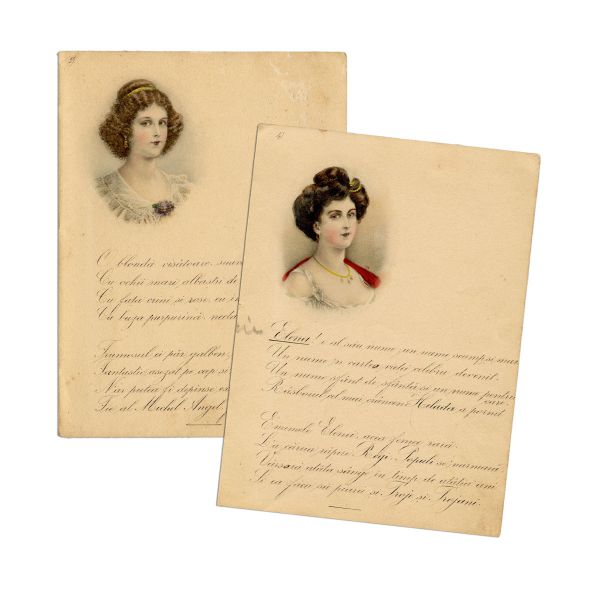 2)
O blondă visătoare, suavă
Cu ochii mari albastri de
Cu fața crini si rose, cu
Cu buza purpurină
Frumosul ei păr galben,
Fantastic asezat pe cap
N'ar putea fi depinse
De al Michel Angel,
4)
Elena! e al său nume, un nume scump si
Un nume 'n cartea vieții celebru devenit.
Un nume sfânt de sfântă si un nume pentru
care
Răsboiul cel mai crâncen Helada a pornit
Elena, acea femee rară.
Din cărei răpire Regi, Popoli se 'narmară
Vărsară atâta sânge în timp de atâtia ani
Si ca făcu să piară si Troja si Trojani.